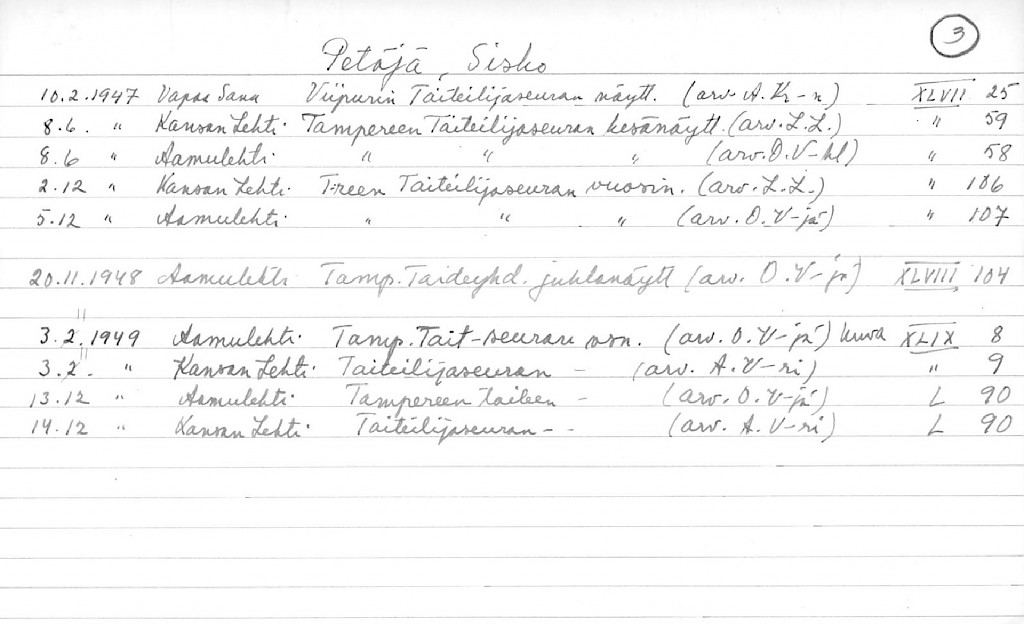 3
Petäjä, Sisko
10.2.1947 Vapaa Sana Viipurin Taiteilijaseuran näytt. (arv. A. Kr-n) XLVII 25
8.6. " Kansan Lehti. Tampereen Taiteilijaseuran kesänäytt. (arv. L.L.) " 59
8.6 " Aamulehti. " " " (arv. O.V-hl) " 58
2.12 " Kansan Lehti. T:reen Taiteilijaseuran vuosin. (arv. L.L.) " 106
5.12 " Aamulehti. " " " (arv. O.V-jä) " 107
20.11.1948 Aamulehti Tamp. Taideyhd. juhlanäytt (arv. O.V-jä) XLVIII 104
3.2.1949 Aamulehti. Tamp. Tait-seuran vsn. (arv. O.V-jä) kuva XLIX 8
3.2. " Kansan Lehti. Taiteilijaseuran - (arv. A.V-ri) " 9
13.12 " Aamulehti. Tampereen taiteen - (arv. O.V-jä) L 90
14.12 " Kansan Lehti. Taiteilijaseuran - - (arv. A.V-ri) L 90